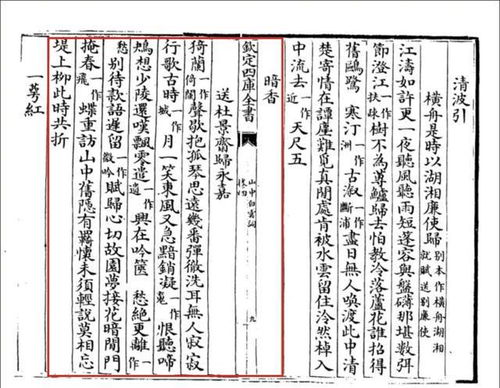 清波引
橫舟是時以湖湘廉使歸
別本作橫舟湖湘
就賦送劉廉使
江濤如許更一夜聽風聽雨短篷容與盤礴那堪數弭
節澄江一作扶疎樹不為蓴鱸歸去怕教冷落蘆花誰招得
舊鷗鷺 寒汀一作洲古溆一作斷浦盡日無人喚渡此中清
楚寄情在譚麈難覓真閒處肯被水雲留住泠然棹入
中流去一作近天尺五
暗香
欽定四庫全書
山中白雲詞
九
送杜景齋歸永嘉
猗蘭一作倚闌聲歇抱孤琴思遠幾番彈徹洗耳無人寂寂
行歌古時一作城月一笑東風又急黯銷凝一作魂恨聽啼
鴂想少陵還嘆飄零一作遺興在吟篋 愁絕更離一作
愁別待款語遲留一作微吟賦歸心切故園夢接花暗閒門
掩春一作飛蝶重訪山中舊隱有羈懷未須輕說莫相忘
堤上柳此時共折
一萼紅